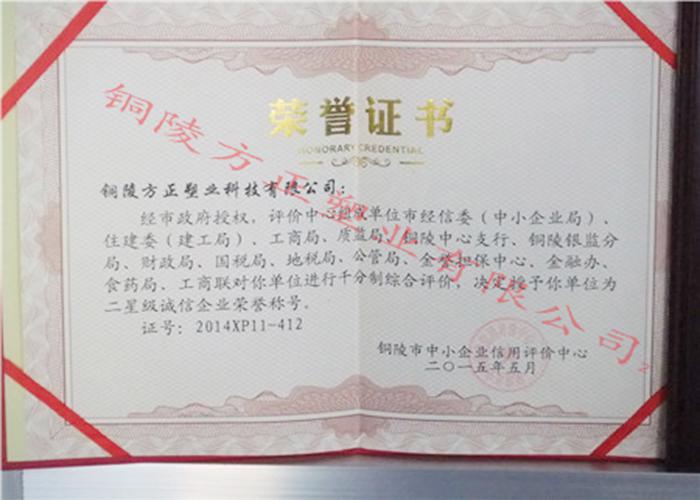 荣誉证书
HONORARY CREDENTIAL
铜陵方正塑业科技有限公司:
经市政府授权,评价中心组成单位市经信委(中小企业局)、
住建委(建工局)、工商局、质监局、铜陵中心支行、铜陵银监分
局、财政局、国税局、地税局、公管局、金誉担保中心、金融办、
食药局、工商联对你单位进行千分制综合评价,决定授予你单位为
二星级诚信企业荣誉称号。
证号:2014XP11-412
铜陵市中小企业信用评价中心
二〇一五年五月
铜陵方正塑业有限公司2